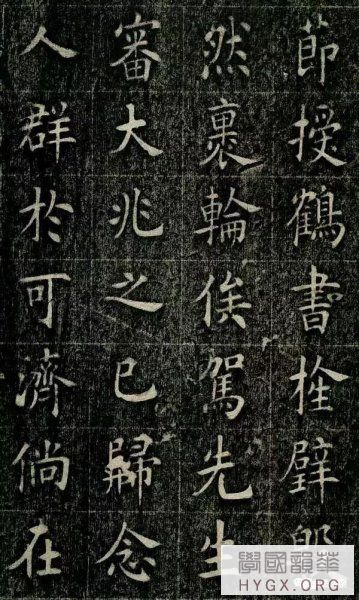 節授鶴書栓
然裹輪俟駕先生
審大兆之已歸念
人群於可濟倘在
學國韻華
HYGX.ORG